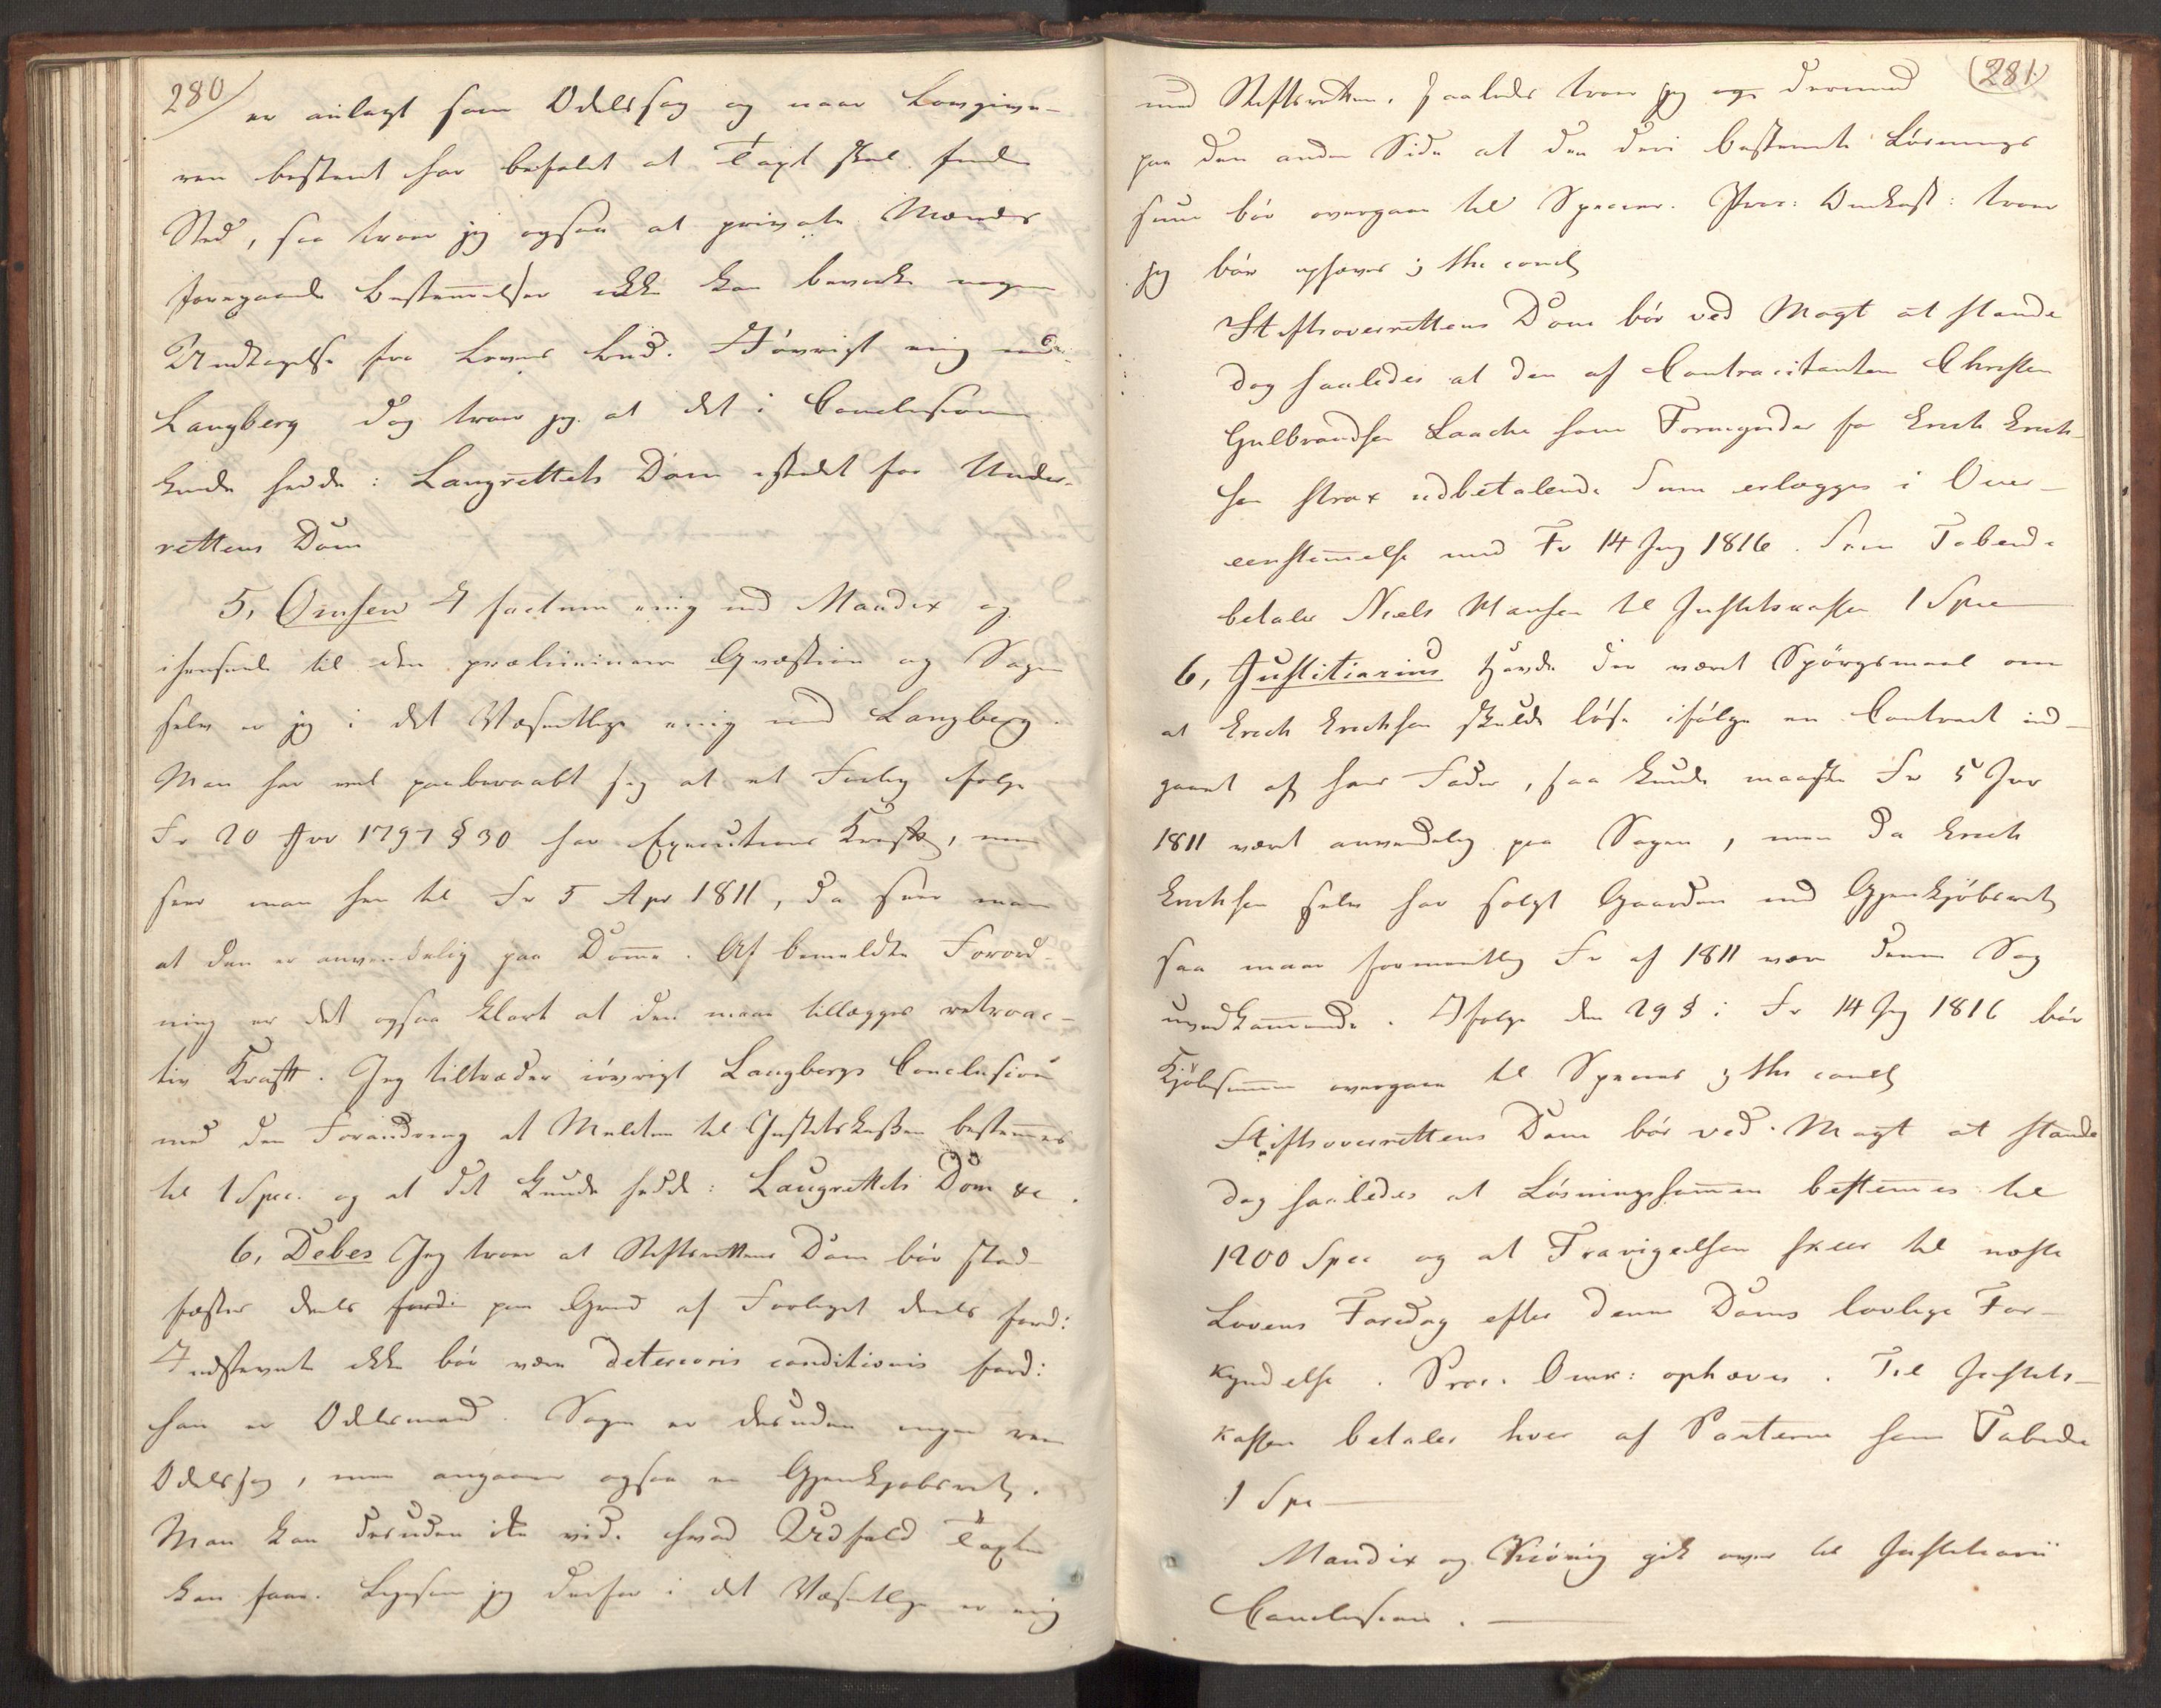 280
er anlagt som Odelssag og naar Lovgive-
ren bestemt har befalet at Taxt skal finde
Sted, saa troer jeg ogsaa at private Mænds
foregaaende Bestem̅elser ikke kan bevirke nogen
Undtagelse fra Lovens Bud. Iøvrigt enig med
Langberg dog troer jeg at det i Conclusionen
burde hedde: Laugrettets Dom istedet for Under-
rettens Dom
5, Omsen I factum enig med Mandix og
ihenseende til den præliminaire Qvæstion og Sagen
selv er jeg i det Væsentlige enig med Langberg.
Man har vel paaberaabt sig at et Forlig ifølge
Fr 20 1797 § 30 har Executions Kraft, men
seer man hen til Fr 5 Apr 1811, da seer man
at den er anvendelig paa Dom̅e. Af bemeldte Forord-
ning er det ogsaa klart at den maa tillægges retroac-
tiv Kraft. Jeg tiltræder iøvrigt Langbergs Conclusion
med den Forandring at Mulcten til Justitskassen bestem̅es
til 1 Spec. og at det burde hedde: Laugrettets Dom &c.
6, Debes Jeg troer at Stiftsrettens Dom bør stad-
fæstes deels fordi paa Grund af Forliget deels fordi
Indstevnte ikke bør være deterioris conditionis fordi
han er Odelsmand. Sagen er desuden ingen reen
Odelssag, men angaaer ogsaa en Gjenkjøbsret.
Man kan desuden ikke vide hvad Udfald Taxten
kan faae. Ligesom jeg derfor i det Væsentlige er enig
281
med Stiftsretten, saaledes troer jeg og dermed
paa den anden Side at den deri bestemte Løsnings
sum bør overgaae til Species. Proc: Omkost: troer
jeg bør ophæves ;
Stiftsoverrettens Dom bør ved Magt at stande
dog saaledes at den af Contracitanten Christen
Gulbrandsen Laache som Formynder for Erich Erich-
sen strax udbetalende Sum erlægges i Over-
eenstem̅else med Fr 14 Jug 1816. Som Tabende
betaler Niels Hansen til Justitskassen 1 Spec
6, Justitiarius Havde der været Spørgsmaal om
at Erich Erichsen skulde løse ifølge en Contract ind-
gaaet af hans Fader, saa kunde maaskee Fr 5 Apr
1811 været anvendelig paa Sagen, men da Erich
Erichsen selv har solgt Gaarden med Gjenkjøbsret
saa maae formeentlig Fr af 1811 være denne Sag
uvedkom̅ende. Ifølge den 29 § i Fr 14 Jug 1816 bør
Kjøbesum̅en overgaae til Species ;
Stiftsoverrettens Dom bør ved Magt at stande
dog saaledes at Løsningssum̅en bestem̅es til
1200 Spec og at Fravigelsen skeer til næste
Lovens Faredag efter denne Doms lovlige For-
kyndelse. Proc. Omk: ophæves. Til Justits-
kassen betaler hver af Parterne som Tabende
1 Spe
Mandix og gik over til Justitiarii
Conclusion.